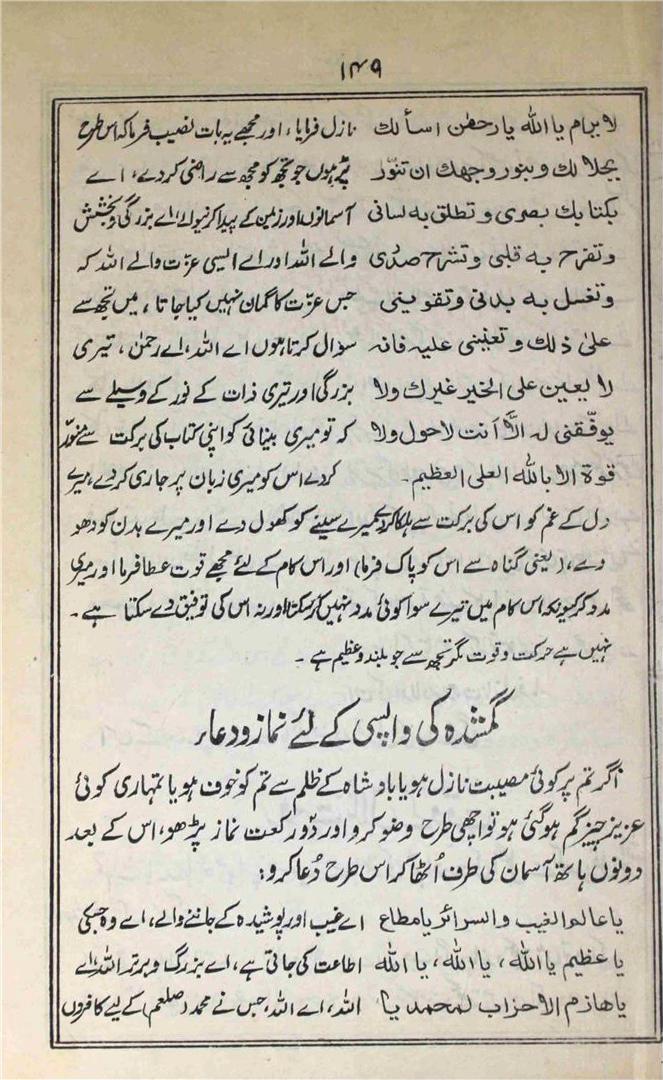 ۱۴۹
لا یرام یا اللّٰه یا رحمٰن اسألك نازل فرمایا، اور مجھے یہ بات نصیب فرما کہ اس طرح
بجلالك وبنور وجهك ان تنوّر پڑھوں جو تجھ کو مجھ سے راضی کر دے، اے
بكتابك بصری وتطلق به لسانی آسمانوں اور زمین کے پیدا کرنیوالے، اے بزرگی و بخشش
وتفرح به قلبی وتشرح صدری والے اللہ اور اے ایسی عزت والے اللہ کہ
وتغسل به بدنی وتقوینی جس عزت کا گمان نہیں کیا جاتا، میں تجھ سے
علیٰ ذٰلك وتعیننی علیه فانه سوال کرتا ہوں اے اللہ، اے رحمٰن، تیری
لا یعین علی الخیر غیرك ولا بزرگی اور تیری ذات کے نور کے وسیلے سے
یوفّقنی له الّا اَنت لاحول ولا کہ تو میری بینائی کو اپنی کتاب کی برکت سے منوّر
قوة الا باللّٰه العلی العظیم۔ کر دے اس کو میری زبان پر جاری کر دے، میرے
دل کے غم کو اس کی برکت سے ہلکا کر دے میرے سینے کو کھول دے اور میرے بدن کو دھو
دے، (یعنی گناہ سے اس کو پاک فرما) اور اس کام کے لئے مجھے قوت عطا فرما اور میری
مدد کر کیونکہ اس کام میں تیرے سوا کوئی مدد نہیں کر سکتا اور نہ اس کی توفیق دے سکتا ہے۔
نہیں ہے حرکت و قوت مگر تجھ سے جو بلند و عظیم ہے۔
گمشدہ کی واپسی کے لئے نماز و دعاء
اگر تم پر کوئی مصیبت نازل ہو یا بادشاہ کے ظلم سے تم کو خوف ہو یا تمہاری کوئی
عزیز چیز گم ہو گئی ہو تو اچھی طرح وضو کرو اور دو رکعت نماز پڑھو، اس کے بعد
دونوں ہاتھ آسمان کی طرف اُٹھا کر اس طرح دُعا کرو:
یا عالم الغیب والسرائر یا مطاع اے غیب اور پوشیدہ کے جاننے والے، اے وہ جسکی
یا عظیم یا اللّٰه، یا اللّٰه، یا اللّٰه اطاعت کی جاتی ہے، اے بزرگ و برتر اللہ، اے
یا هازم الاحزاب لمحمد یا اللہ، اے اللہ، جس نے محمد (صلعم) کے لیے کافروں